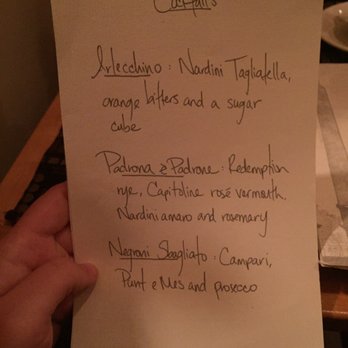 Cocktails
Arlecchino : Nardini Tagliatella,
orange bitters and a sugar
cube
Padrona e Padrone : Redemption
rye, Capitoline rosé vermouth,
Nardini amaro and rosemary
Negroni Sbagliato : Campari,
Punt e Mes and prosecco